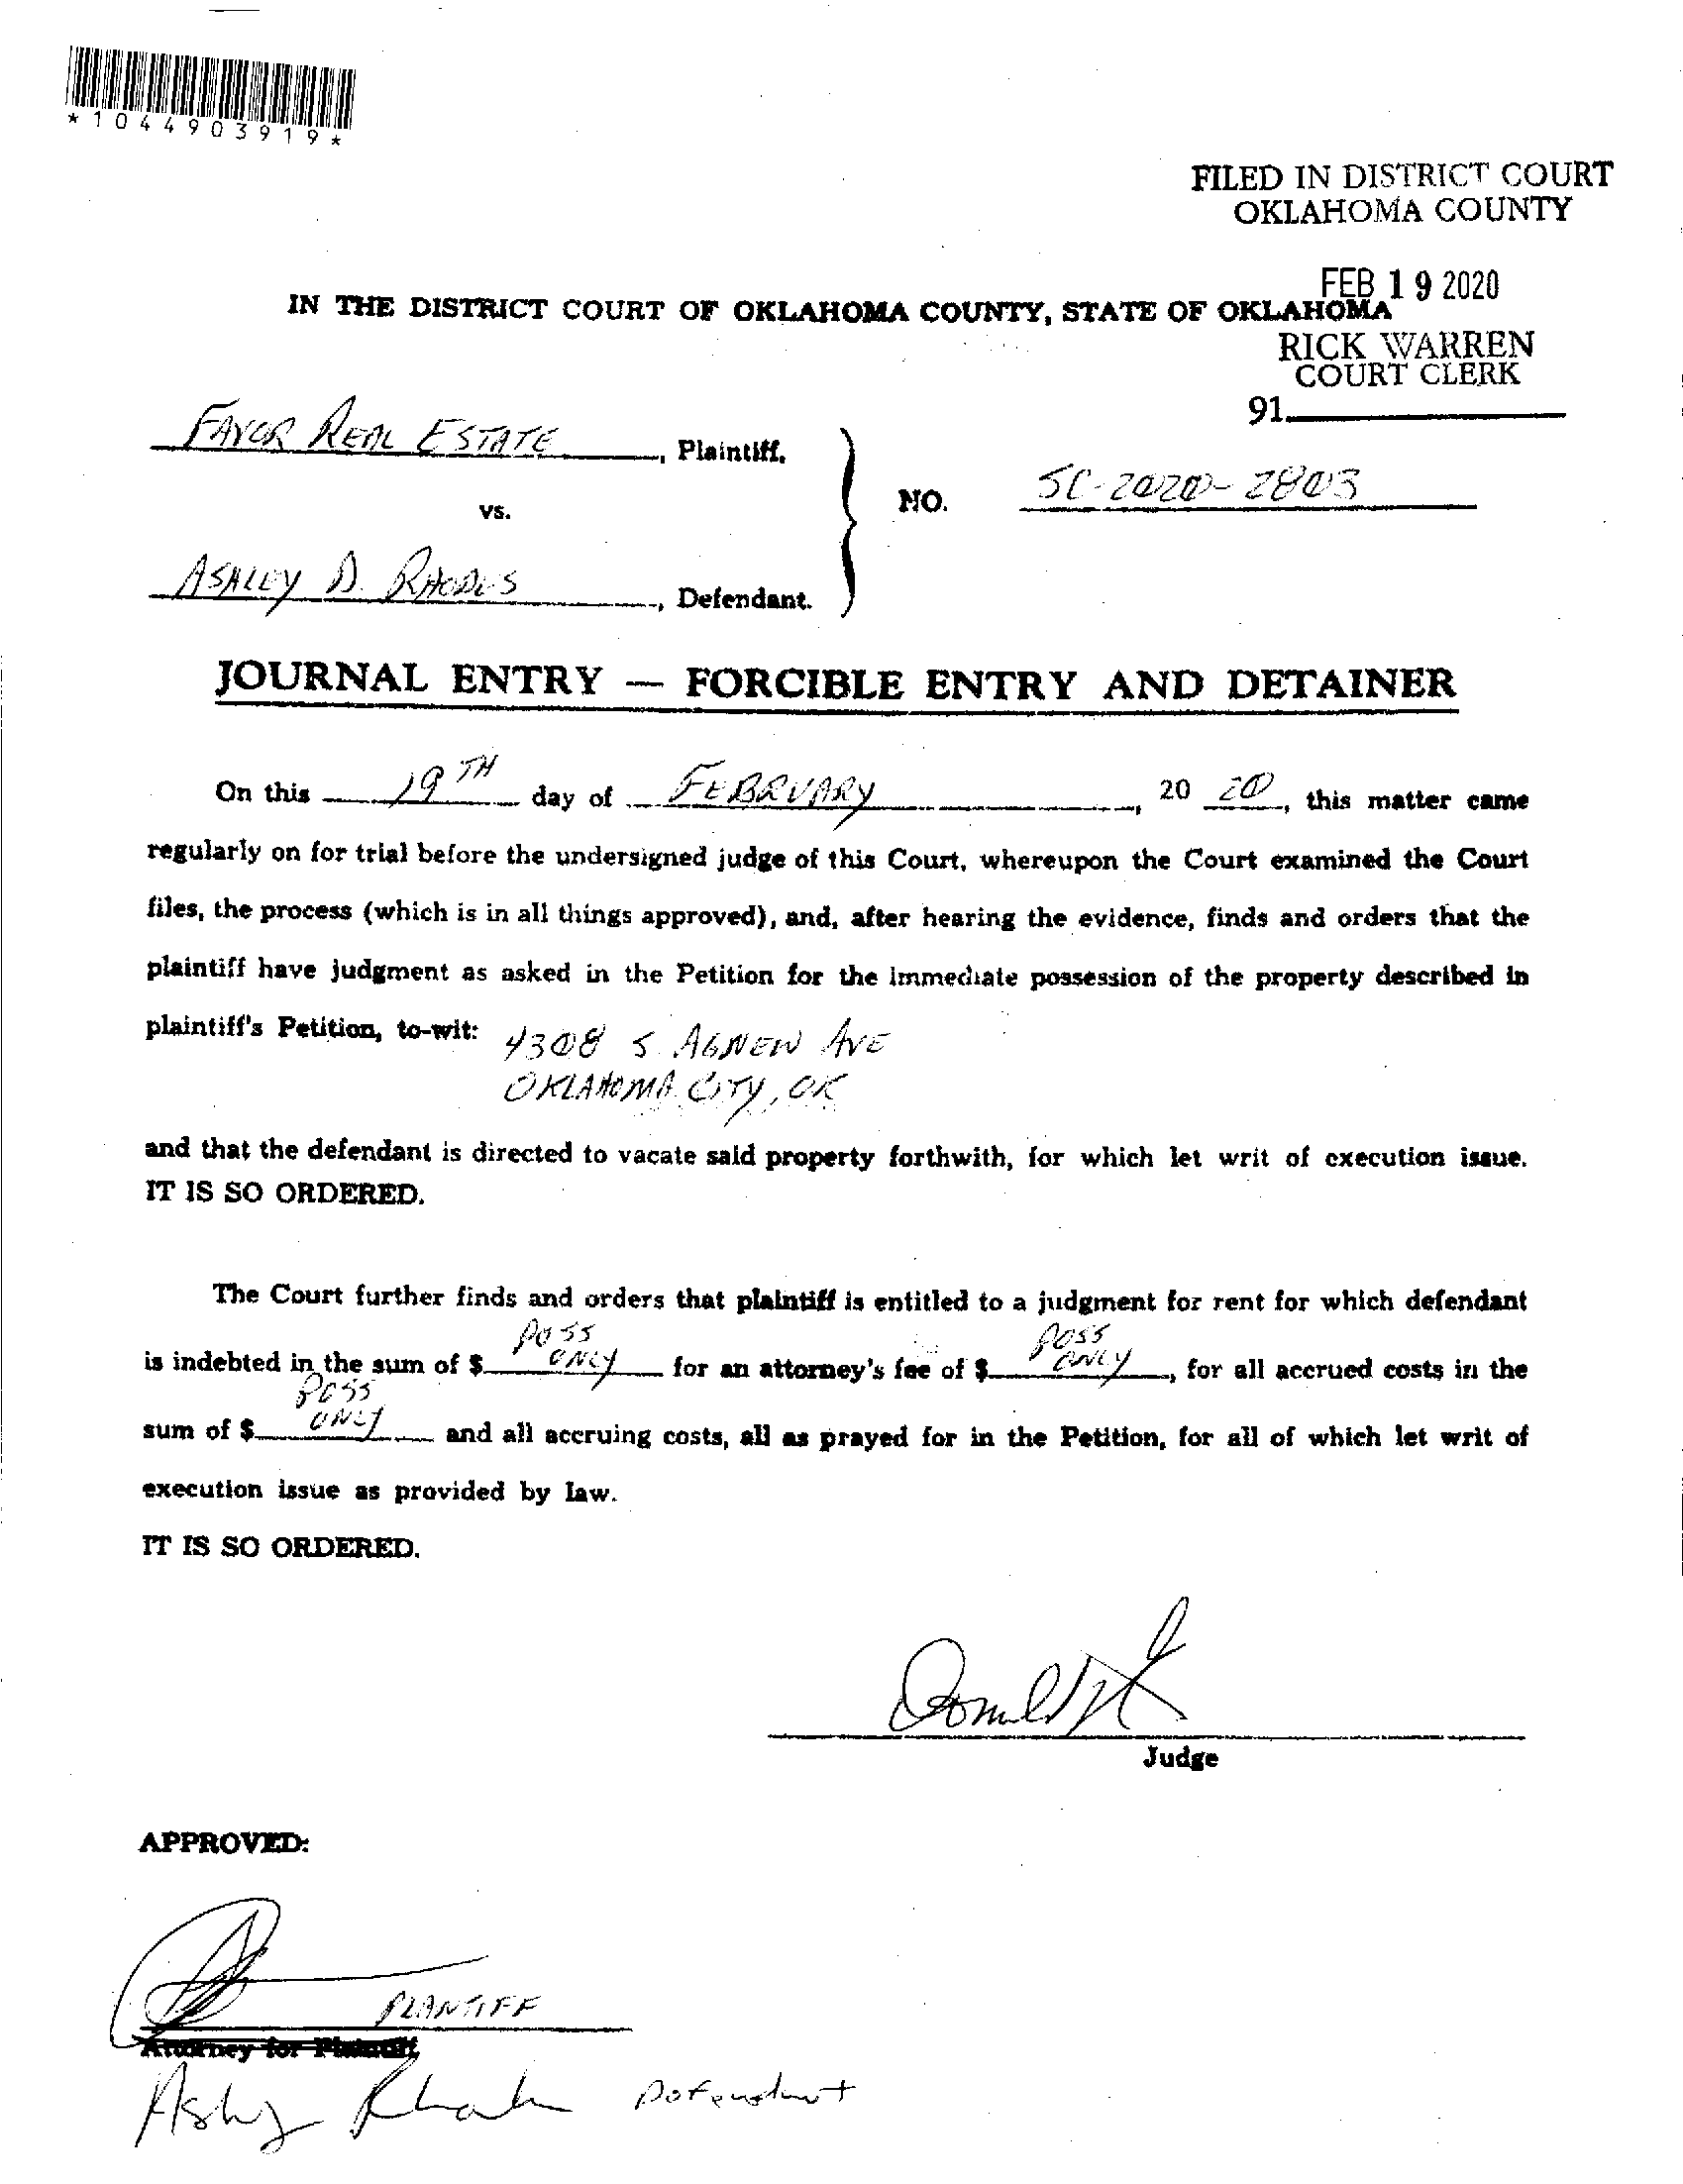 *1044903919*
FILED IN DISTRICT COURT
OKLAHOMA COUNTY
FEB 19 2020
IN THE DISTRICT COURT OF OKLAHOMA COUNTY, STATE OF OKLAHOMA
RICK WARREN
COURT CLERK
91
FAVOR REAL ESTATE, Plaintiff,
vs.
NO. SC-2020-2803
ASHLEY D. RHODES, Defendant.
JOURNAL ENTRY — FORCIBLE ENTRY AND DETAINER
On this 19TH day of FEBRUARY, 20 20, this matter came
regularly on for trial before the undersigned judge of this Court, whereupon the Court examined the Court
files, the process (which is in all things approved), and, after hearing the evidence, finds and orders that the
plaintiff have judgment as asked in the Petition for the immediate possession of the property described in
plaintiff's Petition, to-wit: 4308 S. AGNEW AVE
OKLAHOMA CITY, OK
and that the defendant is directed to vacate said property forthwith, for which let writ of execution issue.
IT IS SO ORDERED.
The Court further finds and orders that plaintiff is entitled to a judgment for rent for which defendant
is indebted in the sum of $ POSS ONLY for an attorney's fee of $ POSS ONLY, for all accrued costs in the
sum of $ POSS ONLY and all accruing costs, all as prayed for in the Petition, for all of which let writ of
execution issue as provided by law.
IT IS SO ORDERED.
Judge
APPROVED:
PLANTIFF
Attorney for Plaintiff
Defendant